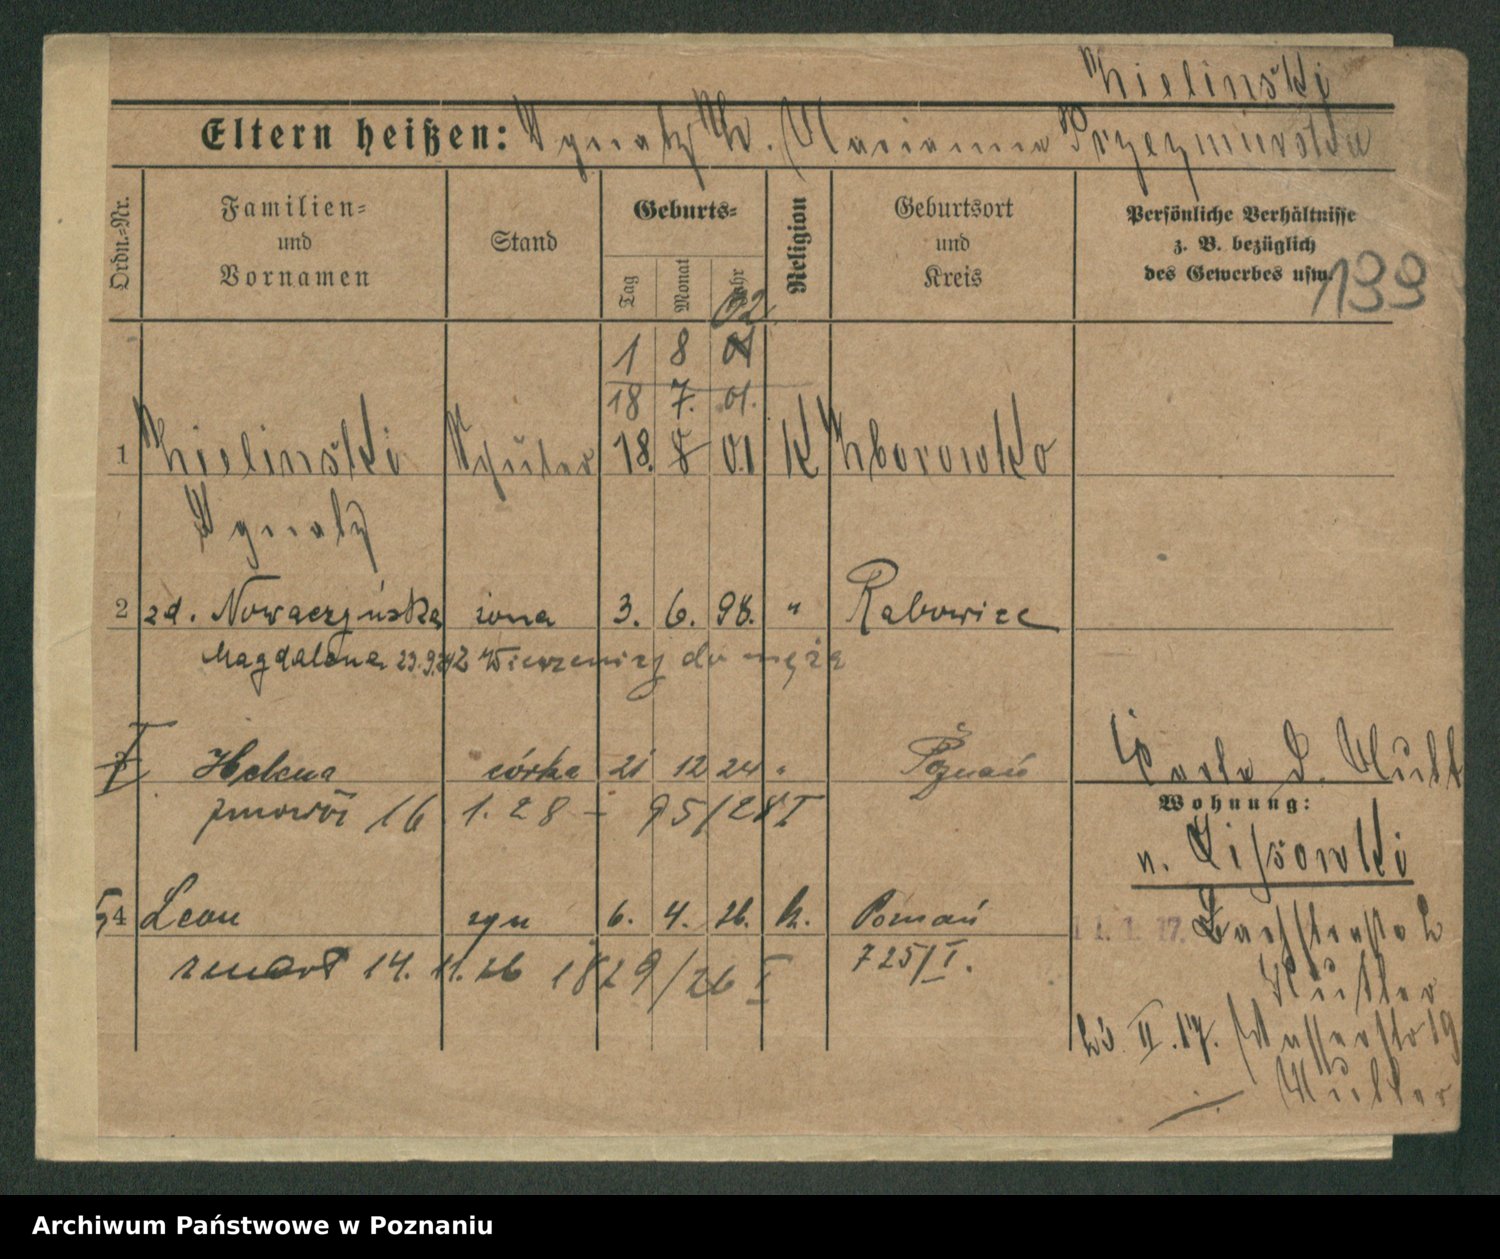 Zielinski
Eltern heißen: Ignatz Z. Marianna Przezminska
Ordn.-Nr.
Familien-
und
Vornamen
Stand
Geburts-
Tag
Monat
Jahr
Religion
Geburtsort
und
Kreis
Persönliche Verhältnisse
z. B. bezüglich
des Gewerbes usw.
199
02
1 8 01
18 7. 01.
1 Zielinski Schüler 18. 8 01 K Zborowko
Ignatz
2 zd. Nowaczyńska żona 3. 6. 98. " Rabowice
Magdalena 23.9.242 Wierzenicy do męża
3 Helena córka 21 12 24 " Poznań
16 1. 28 - 95/28 I
Wohnung:
n. Lissowski
4 Leon syn 6. 4. 26. k. Poznań
11. 1. 17. Bachstraße 2
zmarł 14. 11. 26 1829/26 I 725/I.
Mutter
II. 17. 19
Mutter
Archiwum Państwowe w Poznaniu